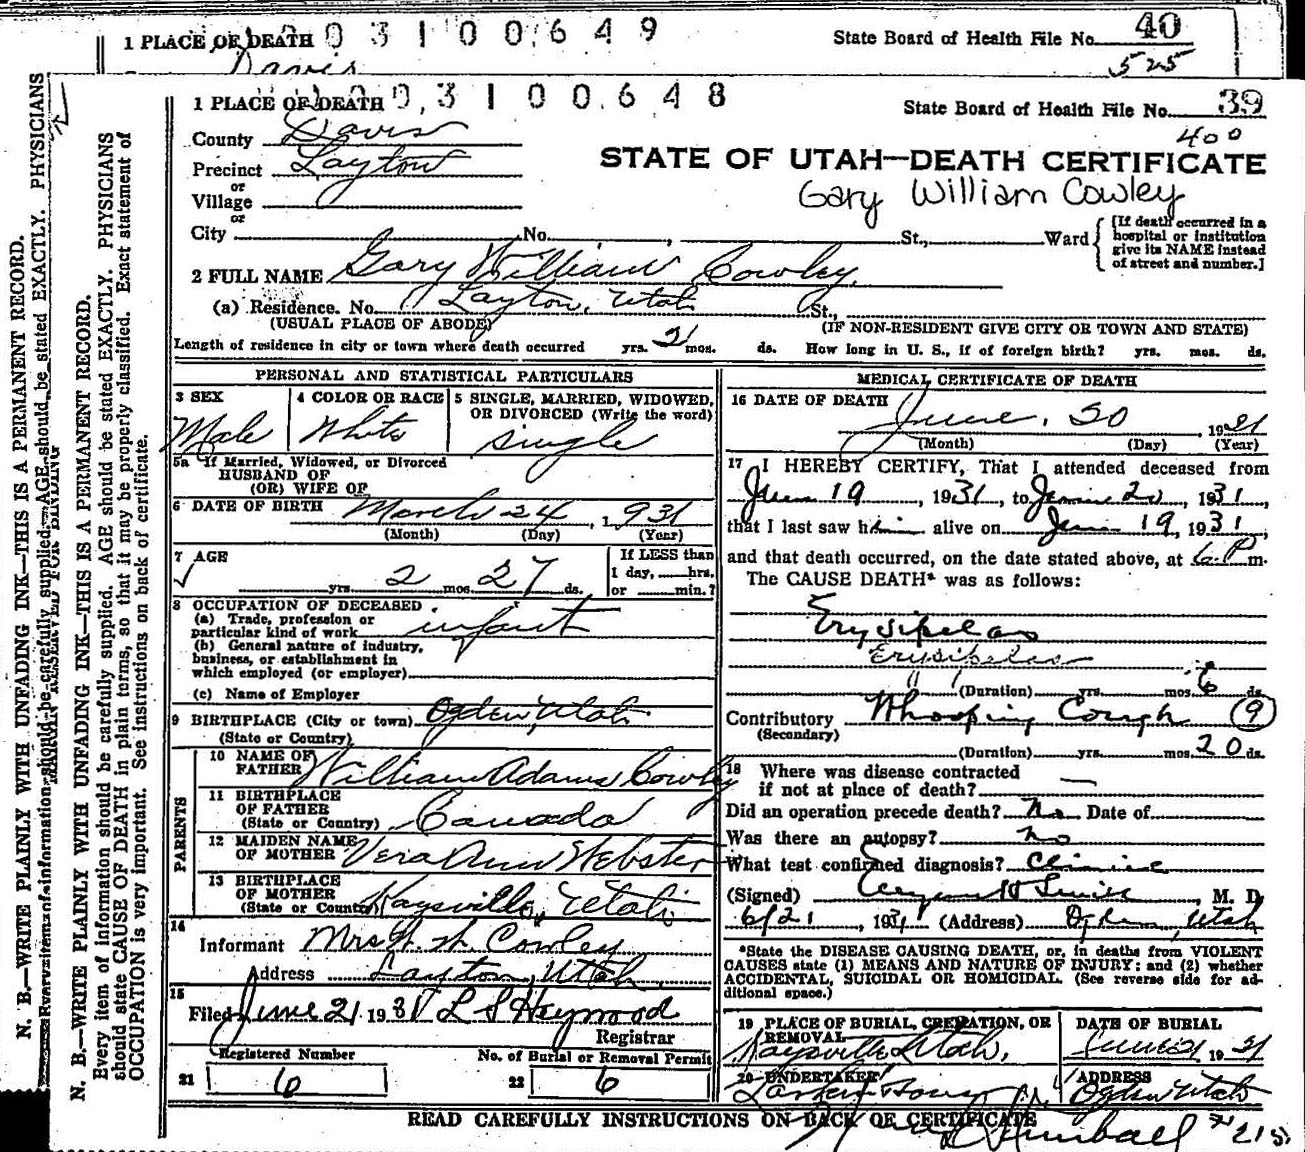 1 PLACE OF DEATH 03100649 State Board of Health File No. 40
Davis 525
1 PLACE OF DEATH 0,3100648 State Board of Health File No. 39
County Davis 400
Precinct Layton STATE OF UTAH—DEATH CERTIFICATE
or
Village Gary William Cowley
or
City No. , St., Ward [If death occurred in a hospital or institution give its NAME instead of street and number.]
2 FULL NAME Gary William Cowley,
(a) Residence. No. Layton, Utah St.,
(USUAL PLACE OF ABODE) (IF NON-RESIDENT GIVE CITY OR TOWN AND STATE)
Length of residence in city or town where death occurred yrs. 2 mos. ds. How long in U. S., if of foreign birth? yrs. mos. ds.
PERSONAL AND STATISTICAL PARTICULARS
3 SEX 4 COLOR OR RACE 5 SINGLE, MARRIED, WIDOWED,
OR DIVORCED (Write the word)
Male White single
5a If Married, Widowed, or Divorced
HUSBAND OF
(OR) WIFE OF
6 DATE OF BIRTH March 24, 1931
(Month) (Day) (Year)
7 AGE If LESS than
1 day, hrs.
yrs. 2 mos. 27 ds. or min.?
8 OCCUPATION OF DECEASED
(a) Trade, profession or
particular kind of work infant
(b) General nature of industry,
business, or establishment in
which employed (or employer)
(c) Name of Employer
9 BIRTHPLACE (City or town) Ogden, Utah
(State or Country)
PARENTS
10 NAME OF
FATHER William Adams Cowley
11 BIRTHPLACE
OF FATHER
(State or Country) Canada
12 MAIDEN NAME
OF MOTHER Vera Ann Webster
13 BIRTHPLACE
OF MOTHER
(State or Country) Kaysville, Utah
14
Informant Mrs Cowley
Address Layton, Utah
15
Filed June 21 1931 L S Heywood
Registrar
Registered Number No. of Burial or Removal Permit
21 6 22 6
MEDICAL CERTIFICATE OF DEATH
16 DATE OF DEATH
June, 20, 1931
(Month) (Day) (Year)
17 I HEREBY CERTIFY, That I attended deceased from
June 19, 1931, to June 20, 1931,
that I last saw him alive on June 19, 1931,
and that death occurred, on the date stated above, at 6 P m.
The CAUSE DEATH* was as follows:
Erysipelas
Erysipelas
(Duration) yrs. mos. 6 ds.
Contributory Whooping Cough 9
(Secondary)
(Duration) yrs. mos. 20 ds.
18 Where was disease contracted
if not at place of death? —
Did an operation precede death? No Date of
Was there an autopsy? no
What test confirmed diagnosis?
(Signed) M. D.
6/21 1931 (Address) Ogden, Utah
*State the DISEASE CAUSING DEATH, or, in deaths from VIOLENT
CAUSES state (1) MEANS AND NATURE OF INJURY: and (2) whether
ACCIDENTAL, SUICIDAL OR HOMICIDAL. (See reverse side for ad-
ditional space.)
19 PLACE OF BURIAL, CREMATION, OR REMOVAL DATE OF BURIAL
Kaysville Utah, June 21 1931
20 UNDERTAKER ADDRESS
Larkin Ogden Utah
READ CAREFULLY INSTRUCTIONS ON BACK OF CERTIFICATE
Kimball 215
N. B.—WRITE PLAINLY WITH UNFADING INK—THIS IS A PERMANENT RECORD.
Every item of information should be carefully supplied. AGE should be stated EXACTLY. PHYSICIANS
N. B.—WRITE PLAINLY WITH UNFADING INK—THIS IS A PERMANENT RECORD.
Every item of information should be carefully supplied. AGE should be stated EXACTLY. PHYSICIANS
should state CAUSE OF DEATH in plain terms, so that it may be properly classified. Exact statement of
OCCUPATION is very important. See instructions on back of certificate.